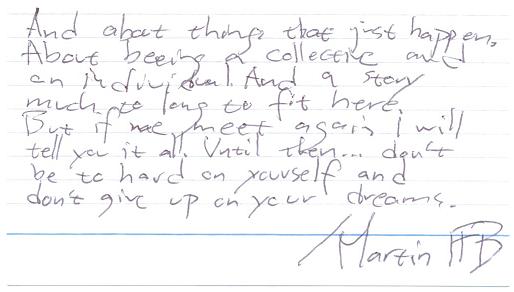 And about things that just happen.
About beeing a collective and
an individual. And a story
much to long to fit here.
But if we meet again I will
tell you it all. Until then... don't
be to hard on yourself and
don't give up on your dreams.
Martin